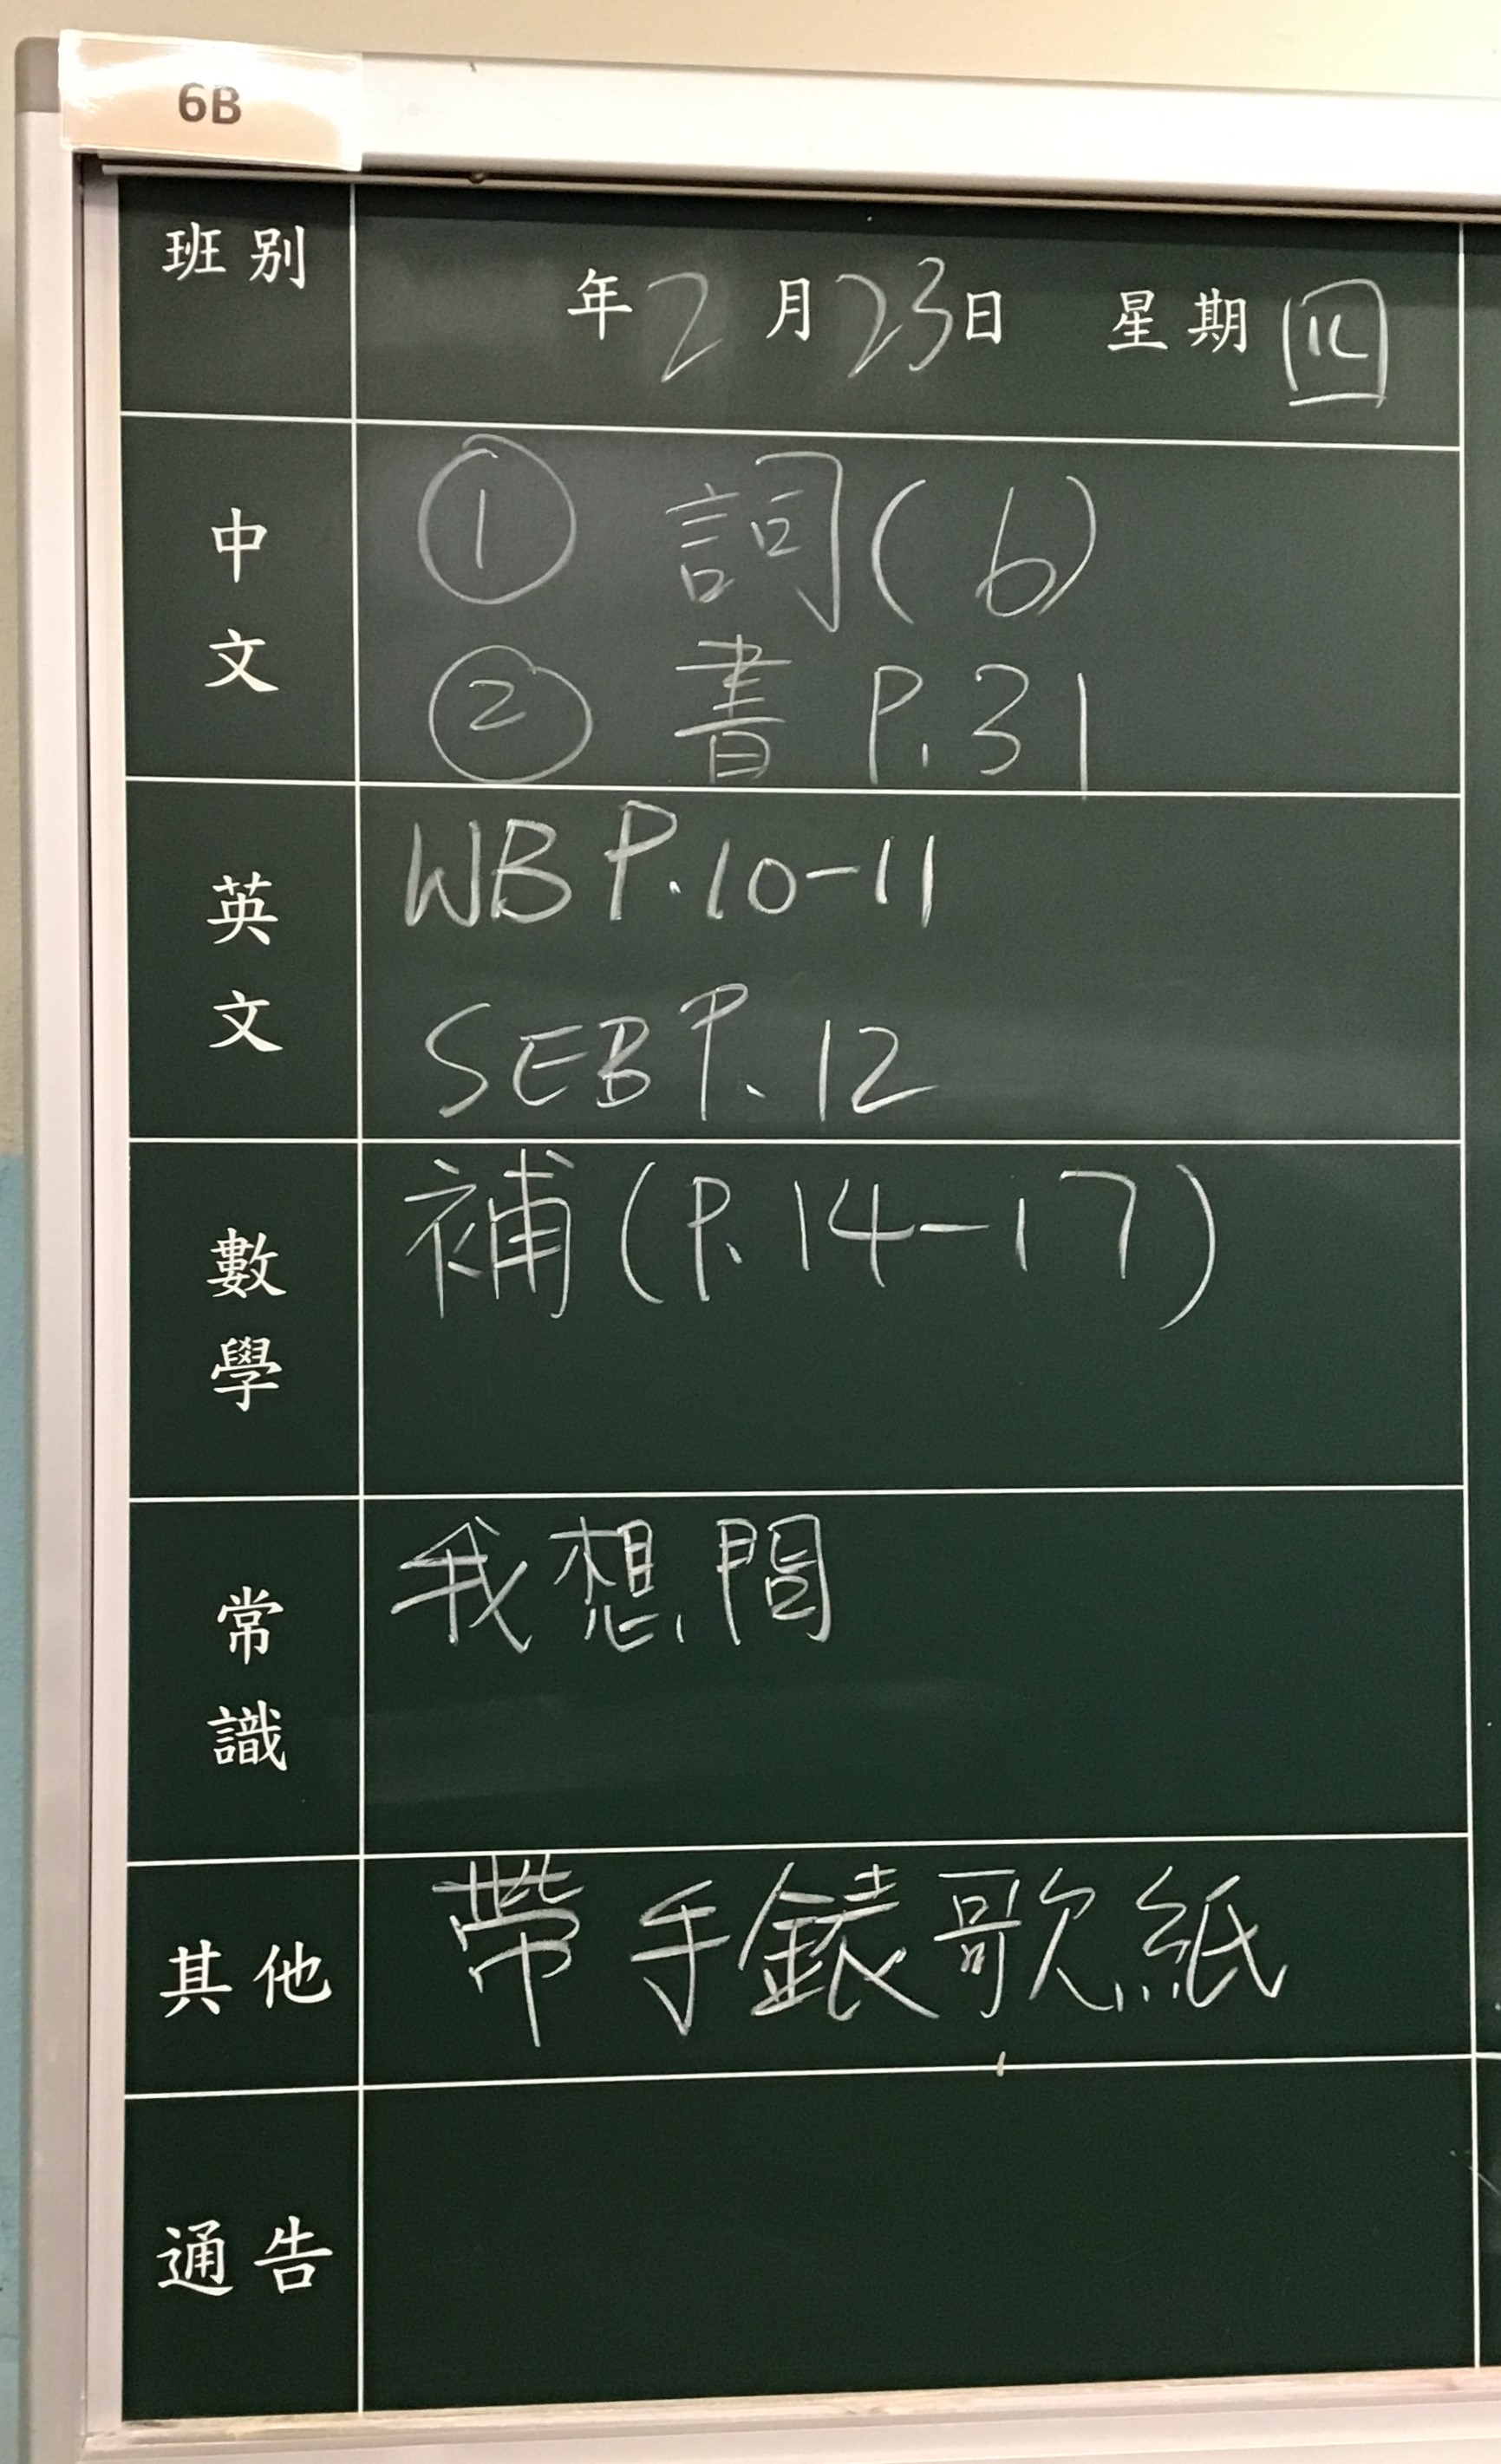 6B
班別 年2月23日 星期四
中文 ① 詞(6)
② 書 P.31
英文 WB P.10-11
SEB P.12
數學 補(P.14-17)
常識 我想問
其他 帶手錶歌紙
通告